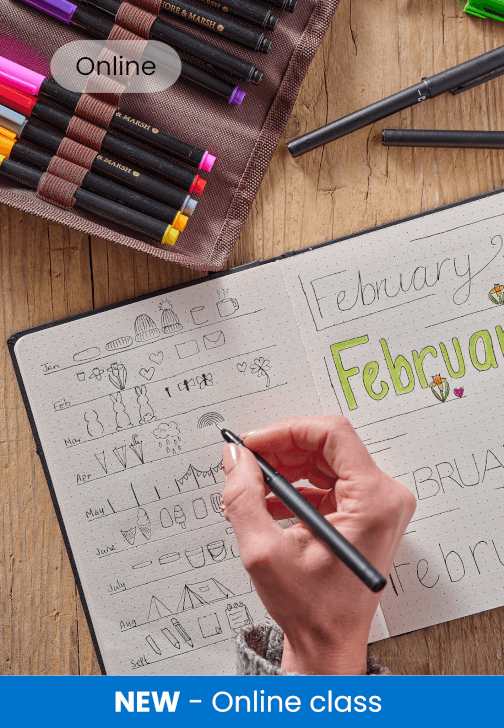 Online
ORE & MARSH
& MARSH
& MARSH
February
February
FEBRUA
Februa
Jan
Feb
Mar
Apr
May
June
July
Aug
Sept
NEW - Online class